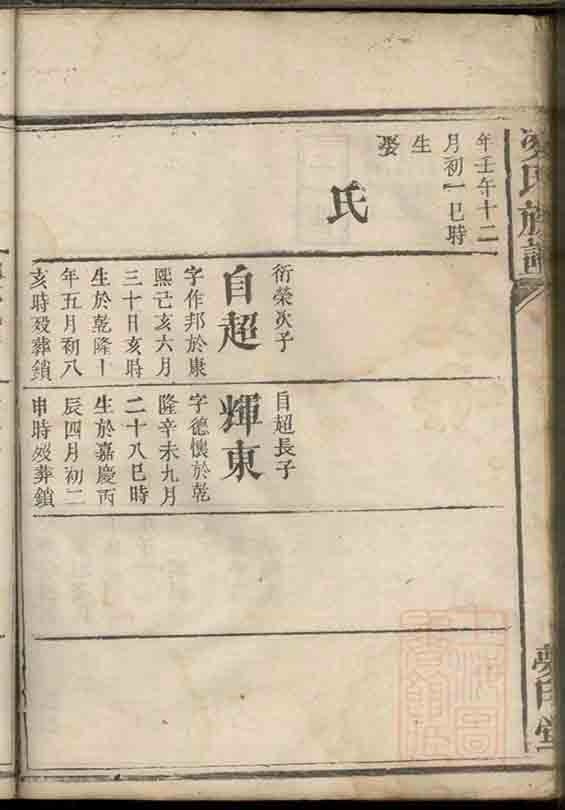 年壬午十二
月初一巳時
生
娶
氏
衍榮次子
自超
字作邦於康
熙己亥六月
三十日亥時
生於乾隆十
年五月初八
亥時殁葬鎖
自超長子
輝東
字德懷於乾
隆辛未九月
二十八巳時
生於嘉慶丙
辰四月初二
申時殁葬鎖
氏族譜
堂